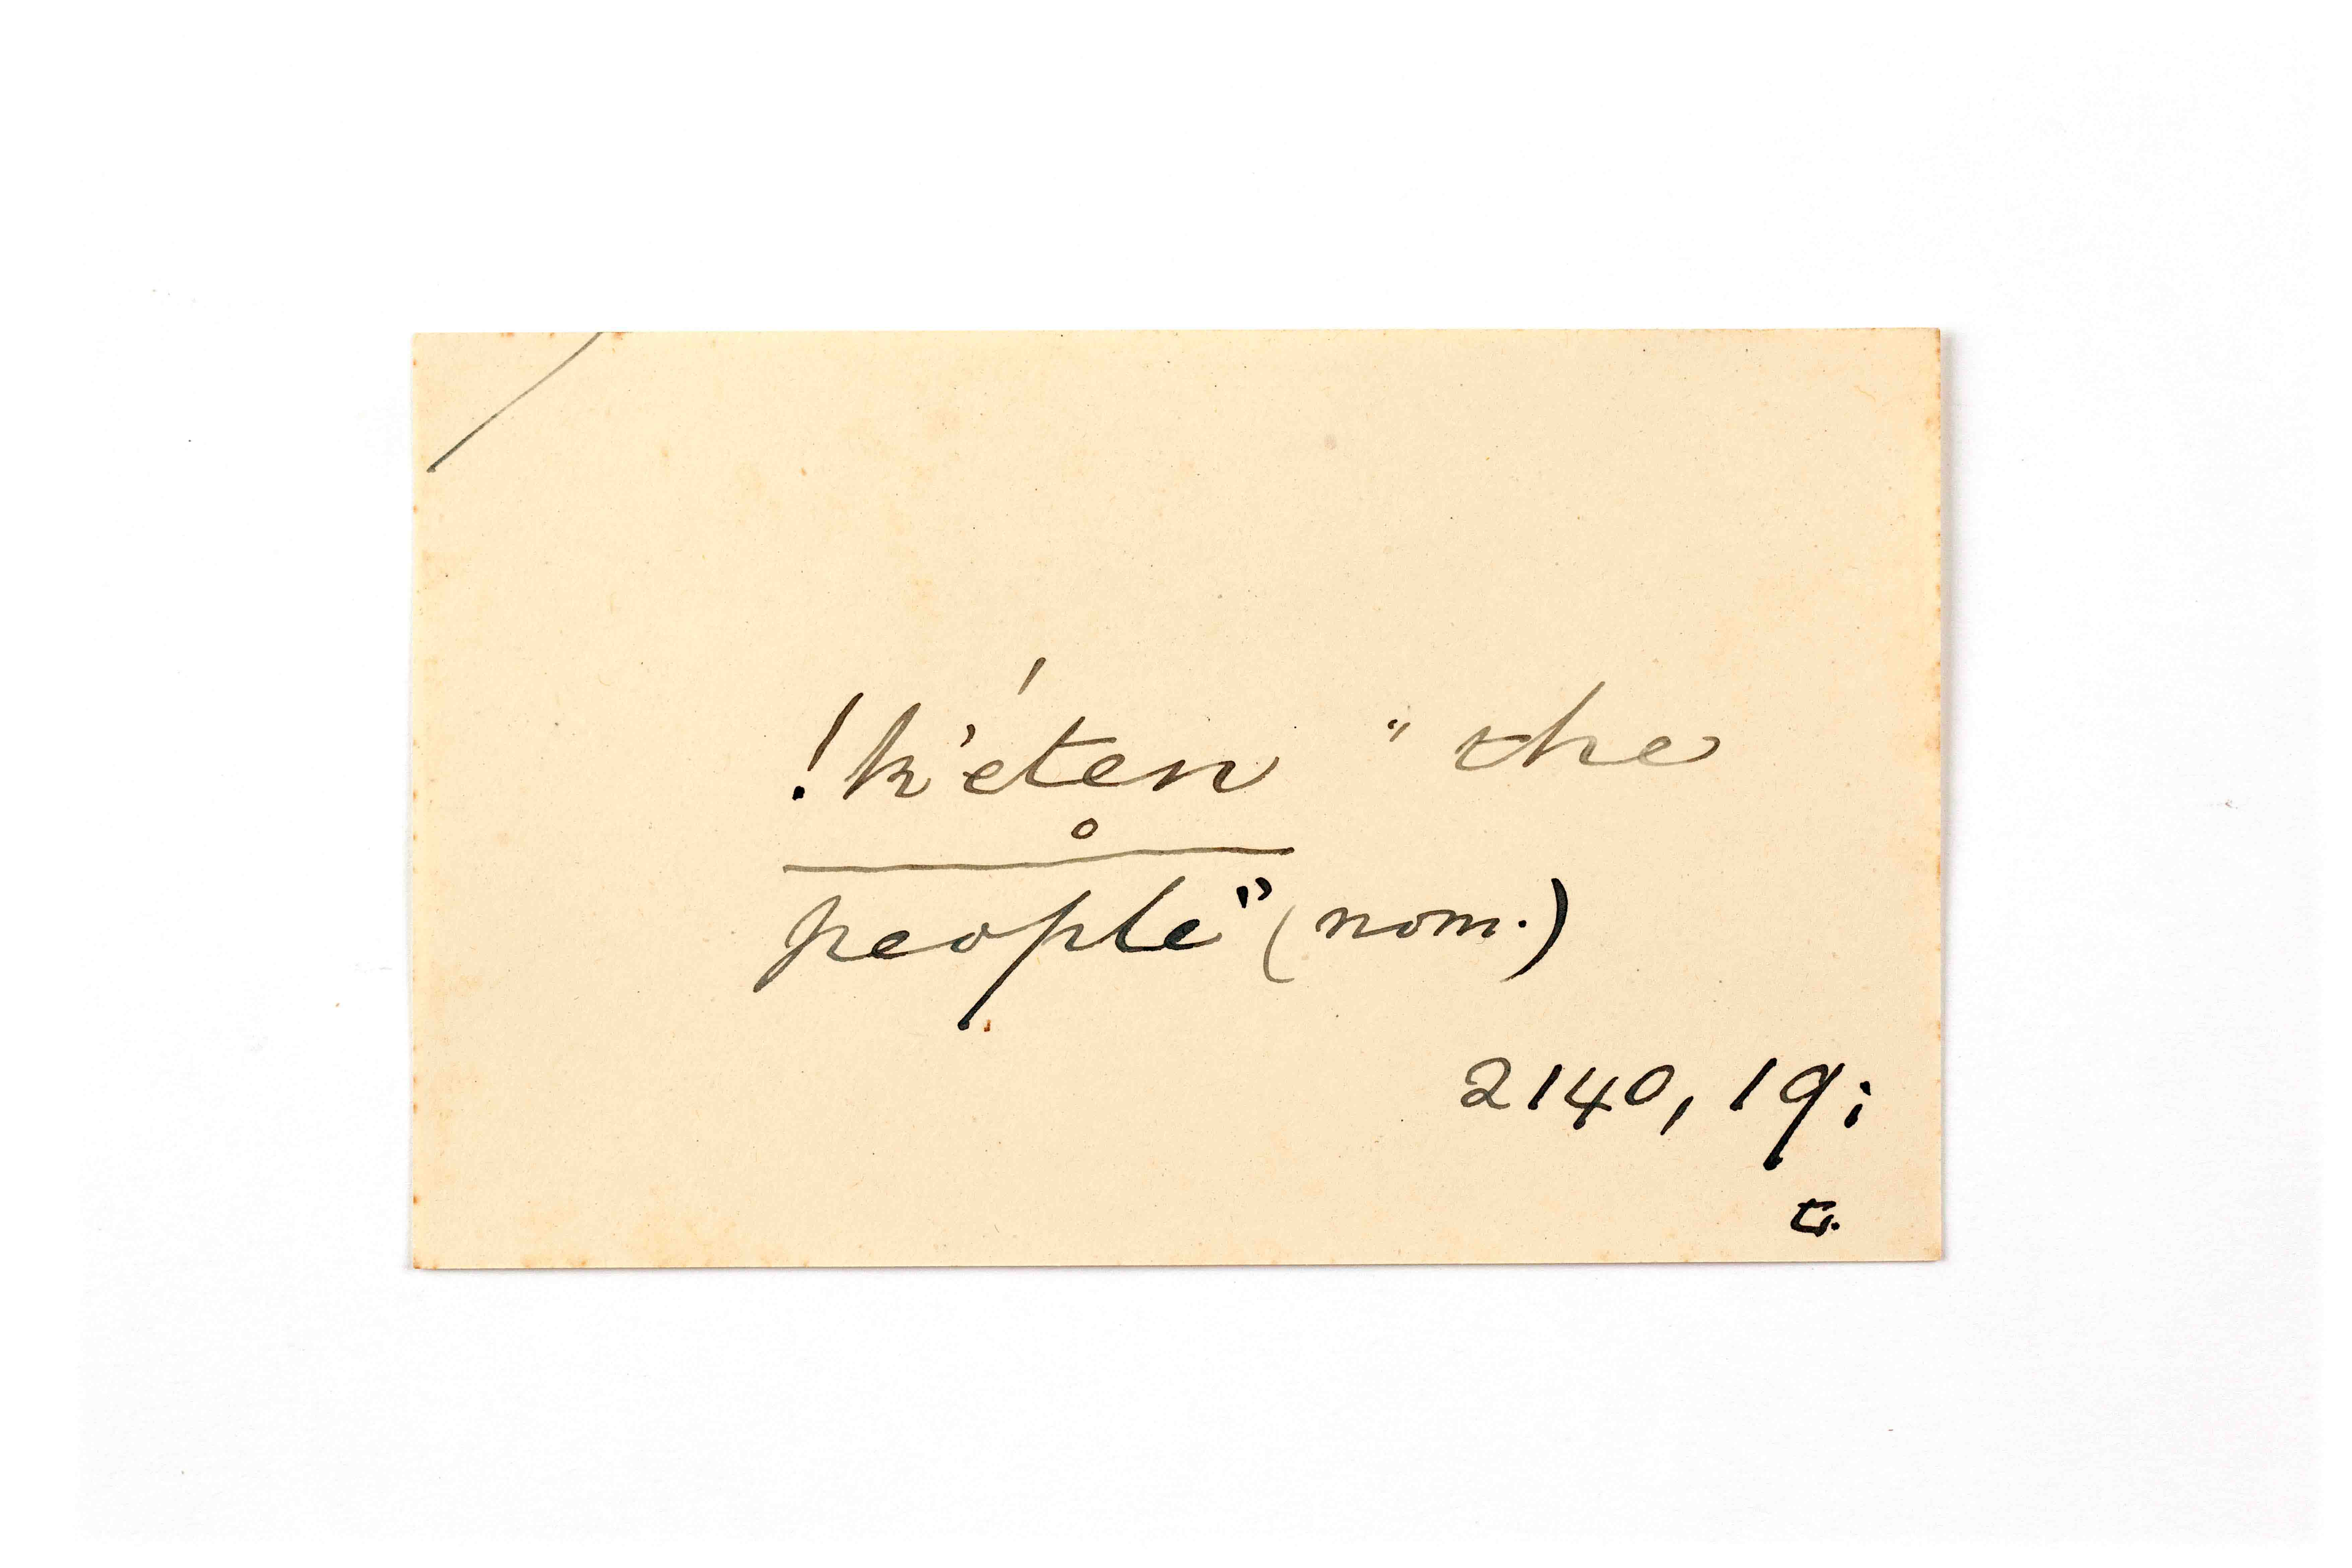 !k'éten̥ "the
people" (nom.)
2140, 19;